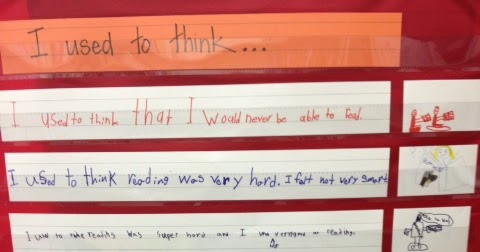 I used to think...
I used to think that I Would never be able to read.
I used to think reading was very hard. I felt not very smart
I used to reading was super hard and I was at reading.